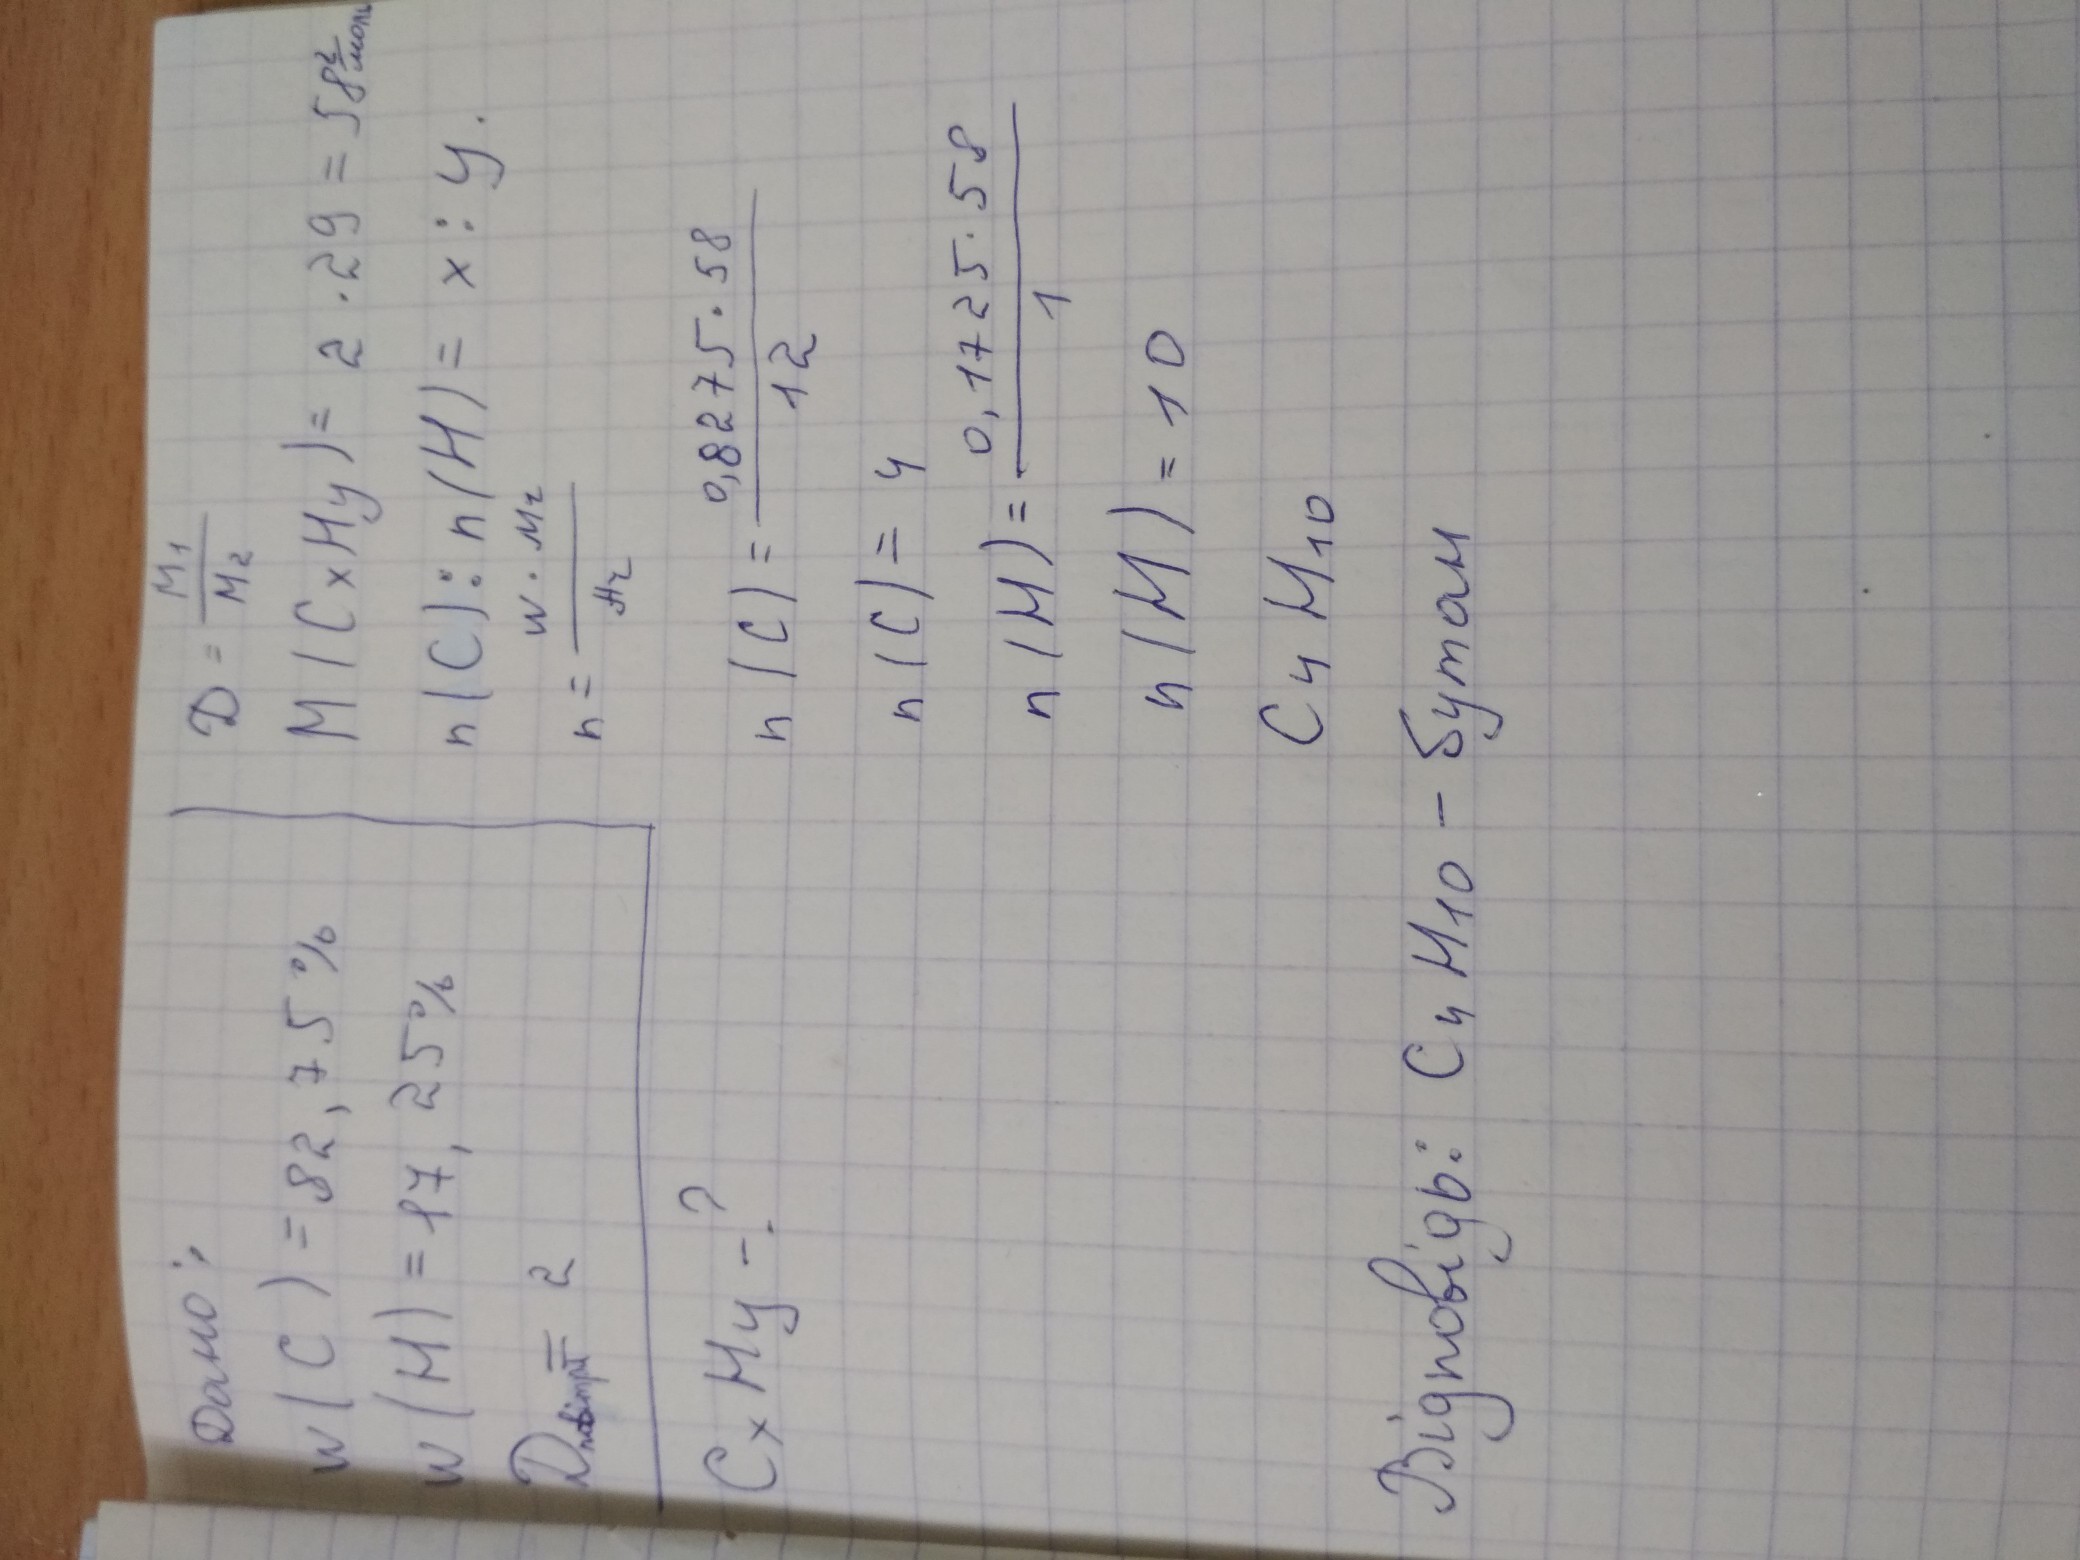 Дано:
w(C) = 82,75%
w(H) = 17,25%
Dповітря = 2
CxHy - ?
D = M1/M2
M(CxHy) = 2 · 29 = 58 г/моль
n(C) : n(H) = x : y.
n = w · Mr / Ar
n(C) = 0,8275 · 58 / 12
n(C) = 4
n(H) = 0,1725 · 58 / 1
n(H) = 10
C4H10
Відповідь: C4H10 - бутан